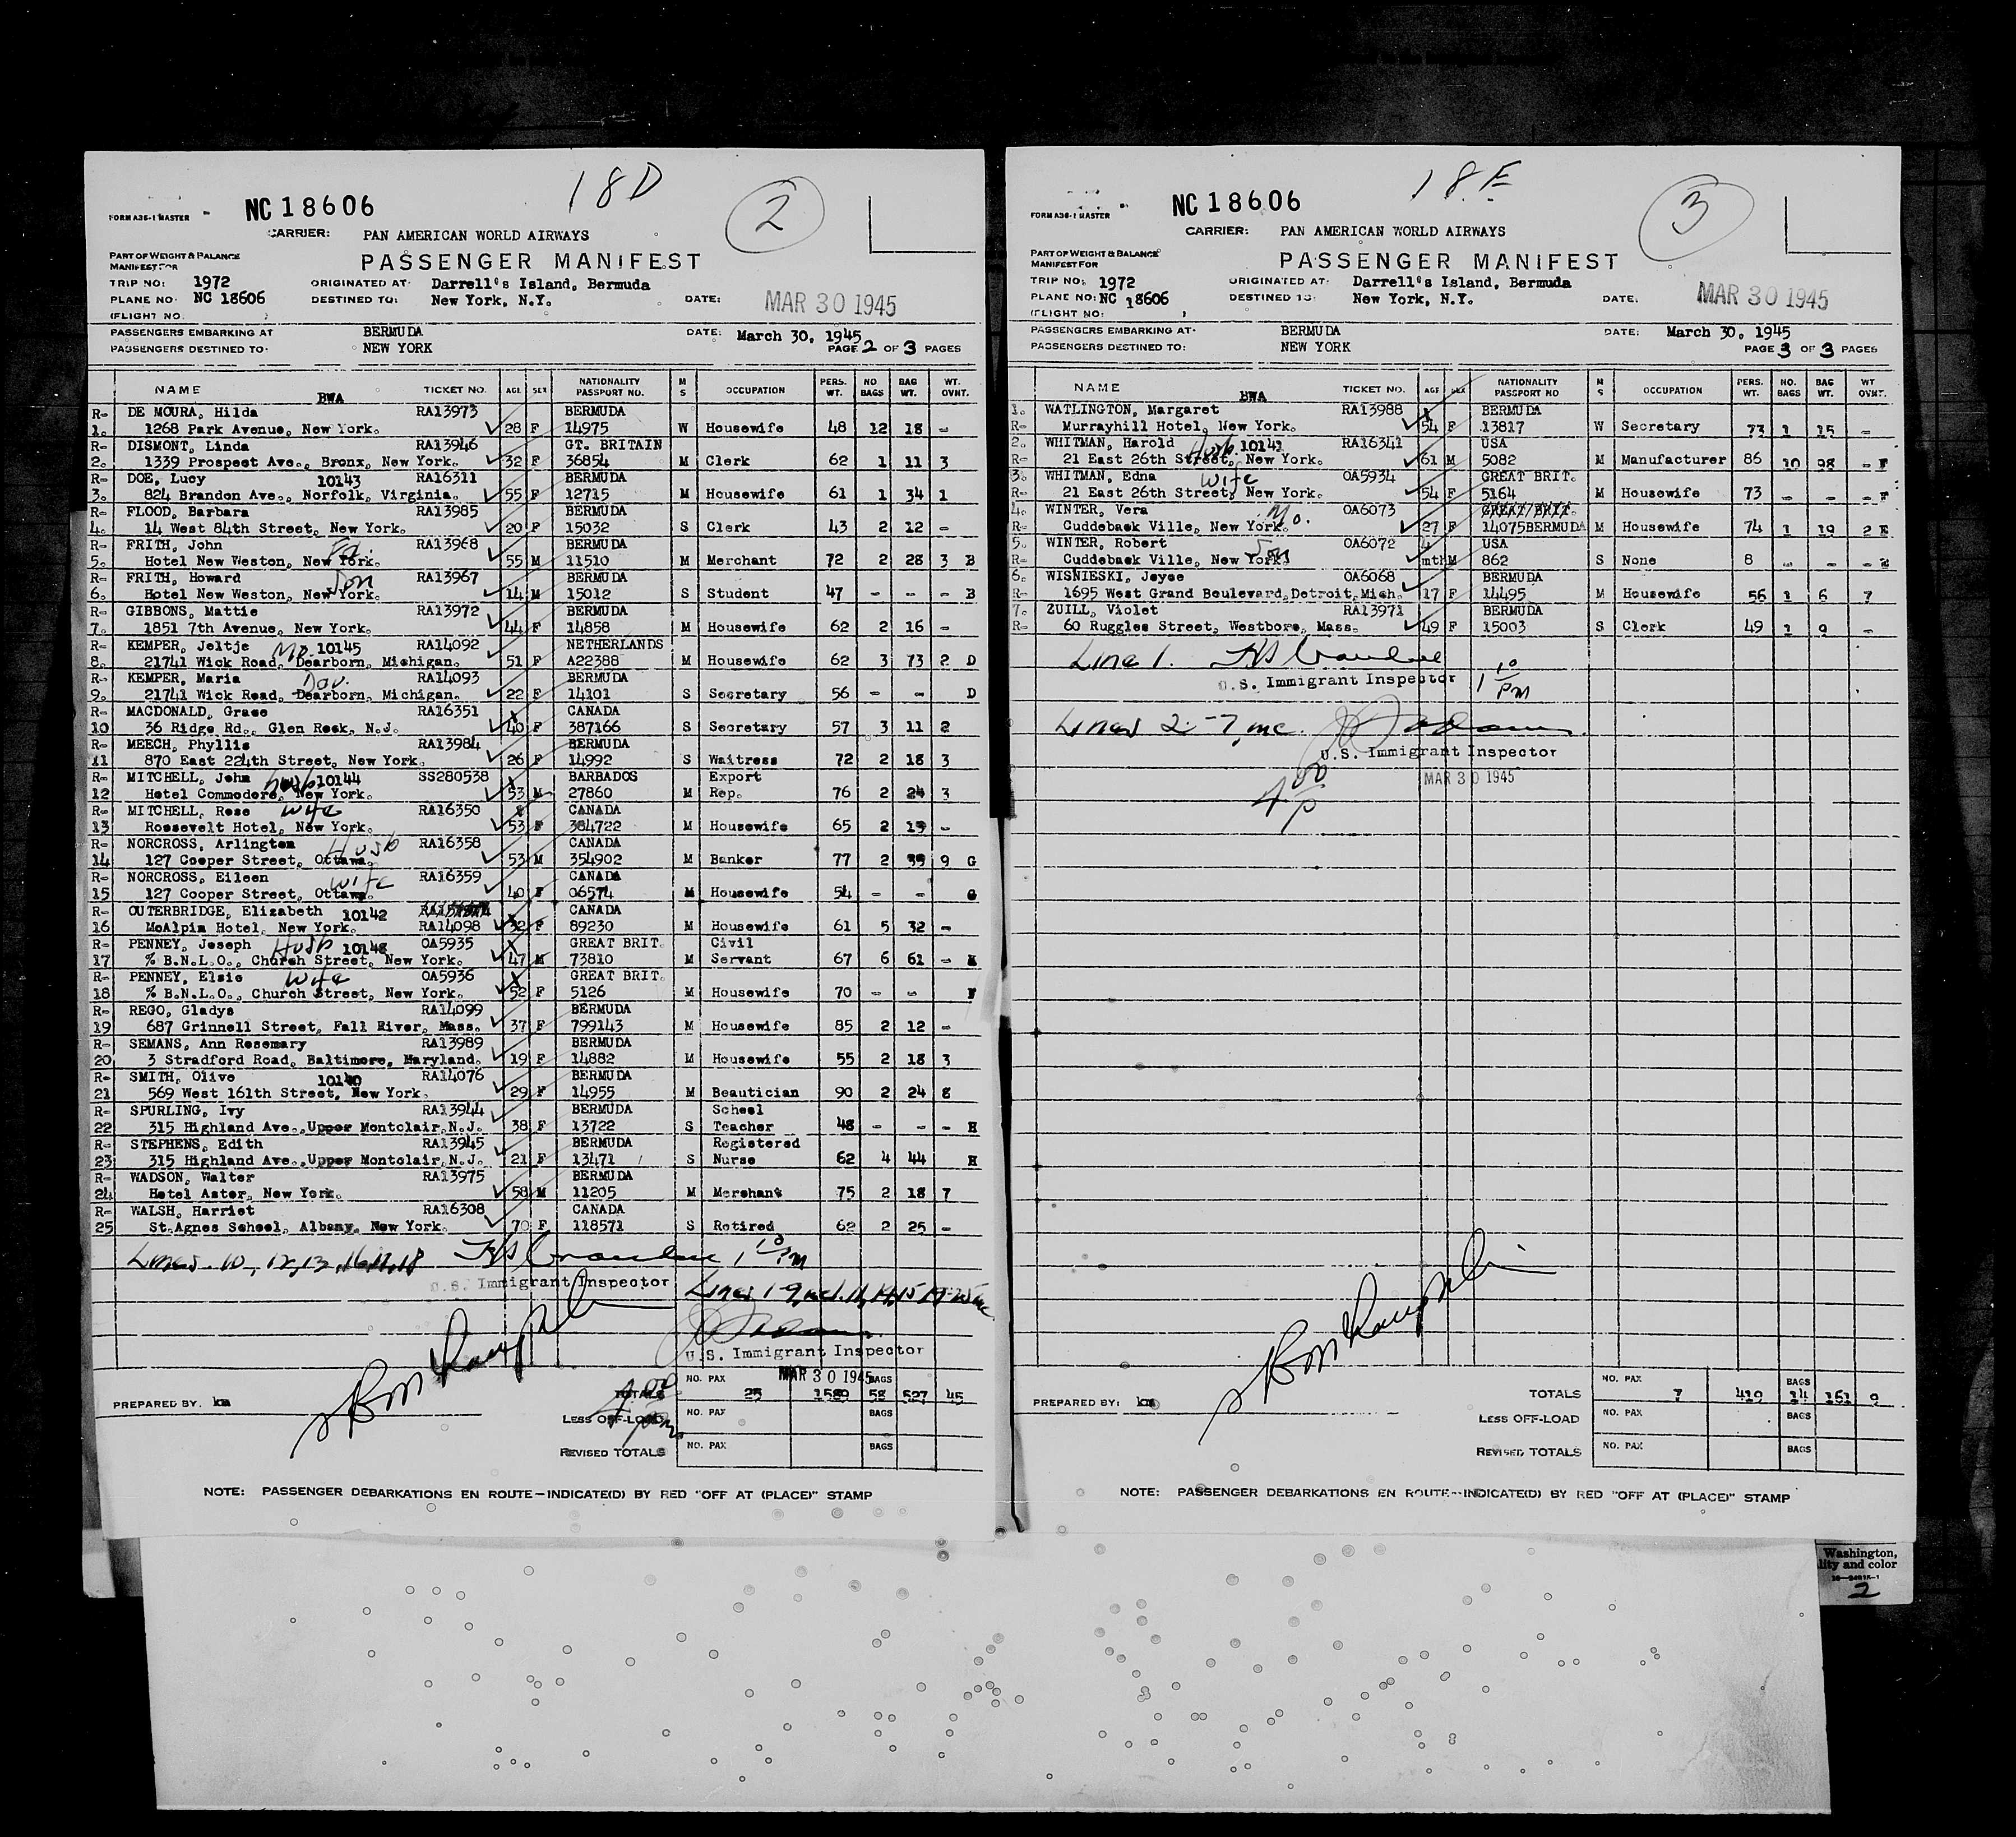 18D
2
FORM A36-1 MASTER
NC 18606
CARRIER: PAN AMERICAN WORLD AIRWAYS
PART OF WEIGHT & BALANCE
MANIFEST FOR
PASSENGER MANIFEST
TRIP NO: 1972 ORIGINATED AT: Darrell's Island, Bermuda
PLANE NO: NC 18606 DESTINED TO: New York, N.Y. DATE: MAR 30 1945
(FLIGHT NO. )
PASSENGERS EMBARKING AT BERMUDA DATE: March 30, 1945
PASSENGERS DESTINED TO: NEW YORK PAGE 2 OF 3 PAGES
NAME BWA TICKET NO. AGE SEX NATIONALITY PASSPORT NO. M S OCCUPATION PERS. WT. NO BAGS BAG WT. WT. OVHT.
R- DE MOURA, Hilda RA13973 BERMUDA
1. 1268 Park Avenue, New York. 28 F 14975 W Housewife 48 12 18 -
R- DISMONT, Linda RA13946 GT. BRITAIN
2. 1339 Prospect Ave., Bronx, New York. 32 F 36854 M Clerk 62 1 11 3
R- DOE, Lucy 10143 RA16311 BERMUDA
3. 824 Brandon Ave., Norfolk, Virginia. 55 F 12715 M Housewife 61 1 34 1
R- FLOOD, Barbara RA13985 BERMUDA
4. 14 West 84th Street, New York. 20 F 15032 S Clerk 43 2 12 -
R- FRITH, John Fa. RA13968 BERMUDA
5. Hotel New Weston, New York. 55 M 11510 M Merchant 72 2 28 3 B
R- FRITH, Howard Son RA13967 BERMUDA
6. Hotel New Weston, New York. 14 M 15012 S Student 47 - - - B
R- GIBBONS, Mattie RA13972 BERMUDA
7. 1851 7th Avenue, New York. 44 F 14858 M Housewife 62 2 16 -
R- KEMPER, Jeltje Mo. 10145 RA14092 NETHERLANDS
8. 21741 Wick Road, Dearborn, Michigan. 51 F A22388 M Housewife 62 3 73 2 D
R- KEMPER, Maria Dau. RA14093 BERMUDA
9. 21741 Wick Road, Dearborn, Michigan. 22 F 14101 S Secretary 56 - - D
R- MACDONALD, Grace RA16351 CANADA
10 36 Ridge Rd., Glen Rock, N.J. 40 F 387166 S Secretary 57 3 11 2
R- MEECH, Phyllis RA13984 BERMUDA
11 870 East 224th Street, New York. 26 F 14992 S Waitress 72 2 18 3
R- MITCHELL, John husb 10144 SS280538 BARBADOS Export
12 Hotel Commodore, New York. 53 M 27860 M Rep. 76 2 24 3
R- MITCHELL, Rose wife RA16350 CANADA
13 Roosevelt Hotel, New York. 53 F 384722 M Housewife 65 2 19 -
R- NORCROSS, Arlington Husb RA16358 CANADA
14 127 Cooper Street, Ottawa. 53 M 354902 M Banker 77 2 39 9 G
R- NORCROSS, Eileen wife RA16359 CANADA
15 127 Cooper Street, Ottawa. 40 F 06574 M Housewife 54 - - G
R- OUTERBRIDGE, Elizabeth 10142 CANADA
16 McAlpin Hotel, New York. RA14098 32 F 89230 M Housewife 61 5 32 -
R- PENNEY, Joseph Husb 10148 OA5935 GREAT BRIT. Civil
17 % B.N.L.O., Church Street, New York. 47 M 73810 M Servant 67 6 61 -
R- PENNEY, Elsie wife OA5936 GREAT BRIT.
18 % B.N.L.O., Church Street, New York. 52 F 5126 M Housewife 70 - -
R- REGO, Gladys RA14099 BERMUDA
19 687 Grinnell Street, Fall River, Mass. 37 F 799143 M Housewife 85 2 12 -
R- SEMANS, Ann Rosemary RA13989 BERMUDA
20 3 Stradford Road, Baltimore, Maryland. 19 F 14882 M Housewife 55 2 18 3
R- SMITH, Olive 10140 RA14076 BERMUDA
21 569 West 161th Street, New York. 29 F 14955 M Beautician 90 2 24 8
R- SPURLING, Ivy RA13944 BERMUDA School
22 315 Highland Ave., Upper Montclair, N.J. 38 F 13722 S Teacher 48 - - - H
R- STEPHENS, Edith RA13945 BERMUDA Registered
23 315 Highland Ave., Upper Montclair, N.J. 21 F 13471 S Nurse 62 4 44 H
R- WADSON, Walter RA13975 BERMUDA
24 Hotel Astor, New York. 58 M 11205 M Merchant 75 2 18 7
R- WALSH, Harriet RA16308 CANADA
25 St. Agnes School, Albany, New York. 70 F 118571 S Retired 62 2 25 -
Lines 10, 12, 13, 16, 17, 18 1 10 PM
U.S. Immigrant Inspector
Lines 1-9 incl. 11, 14, 15 19-25 inc
U.S. Immigrant Inspector
MAR 30 1945
4 00 pm
PREPARED BY: km
TOTALS NO. PAX 25 1589 BAGS 58 527 45
LESS OFF-LOAD NO. PAX BAGS
REVISED TOTALS NO. PAX BAGS
NOTE: PASSENGER DEBARKATIONS EN ROUTE-INDICATE(D) BY RED "OFF AT (PLACE)" STAMP
18E
3
FORM A36-1 MASTER
NC 18606
CARRIER: PAN AMERICAN WORLD AIRWAYS
PART OF WEIGHT & BALANCE
MANIFEST FOR
PASSENGER MANIFEST
TRIP NO: 1972 ORIGINATED AT: Darrell's Island, Bermuda
PLANE NO: NC 18606 DESTINED TO: New York, N.Y. DATE. MAR 30 1945
(FLIGHT NO: )
PASSENGERS EMBARKING AT: BERMUDA DATE: March 30, 1945
PASSENGERS DESTINED TO: NEW YORK PAGE 3 OF 3 PAGES
NAME BWA TICKET NO. AGE SEX NATIONALITY PASSPORT NO M S OCCUPATION PERS. WT. NO. BAGS BAG WT. WT OVHT.
1. WATLINGTON, Margaret RA13988 BERMUDA
R- Murrayhill Hotel, New York. 54 F 13817 W Secretary 73 1 15 -
2. WHITMAN, Harold Husb 10141 RA16341 USA
R- 21 East 26th Street, New York. 61 M 5082 M Manufacturer 86 10 98 - F
3. WHITMAN, Edna wife OA5934 GREAT BRIT.
R- 21 East 26th Street, New York. 54 F 5164 M Housewife 73 - - - F
4. WINTER, Vera Mo. OA6073 GREAT BRIT.
R- Cuddeback Ville, New York. 27 F 14075BERMUDA M Housewife 74 1 19 2 E
5. WINTER, Robert Son OA6072 4 USA
R- Cuddeback Ville, New York. mth M 862 S None 8 - - -
6. WISNIESKI, Joyce OA6068 BERMUDA
R- 1695 West Grand Boulevard, Detroit, Mich. 17 F 14495 M Housewife 56 1 6 7
7. ZUILL, Violet RA13971 BERMUDA
R- 60 Ruggles Street, Westboro, Mass. 49 F 15003 S Clerk 49 1 9 -
Line 1.
U.S. Immigrant Inspector 1 10 PM
Lines 2-7, inc.
U.S. Immigrant Inspector
MAR 30 1945
4 00 p
PREPARED BY: km
TOTALS NO. PAX 7 419 BAGS 14 161 9
LESS OFF-LOAD NO. PAX BAGS
REVISED TOTALS NO. PAX BAGS
NOTE: PASSENGER DEBARKATIONS EN ROUTE--INDICATE(D) BY RED "OFF AT (PLACE)" STAMP
Washington,
lity and color
2